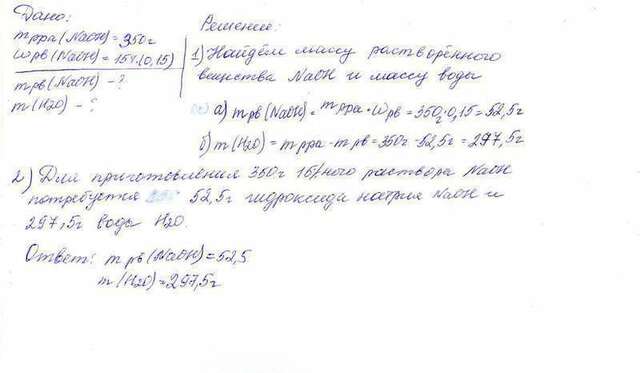 Дано:
m рра (NaOH) = 350г
ω рв (NaOH) = 15% (0,15)
m рв (NaOH) - ?
m (H2O) - ?
Решение:
1) Найдём массу растворённого
вещества NaOH и массу воды
а) m рв (NaOH) = m рра · ω рв = 350г · 0,15 = 52,5г
б) m (H2O) = m рра - m рв = 350г - 52,5г = 297,5г
2) Для приготовления 350г 15%ного раствора NaOH
потребуется 52,5г гидроксида натрия NaOH и
297,5г воды H2O.
Ответ: m рв (NaOH) = 52,5
m (H2O) = 297,5г